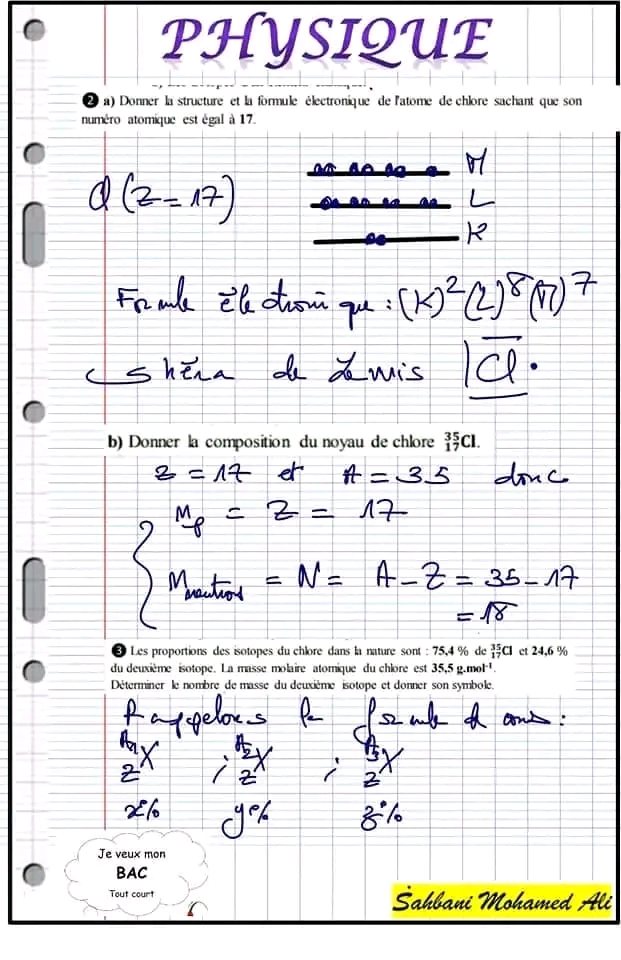 PHYSIQUE
❷ a) Donner la structure et la formule électronique de l'atome de chlore sachant que son
numéro atomique est égal à 17.
Cl (Z = 17)
M
L
K
Formule électronique : (K)² (L)⁸ (M)⁷
shéma de Lewis |Cl·
b) Donner la composition du noyau de chlore ³⁵₁₇Cl.
Z = 17 et A = 35 donc
= Z = 17
= N = A - Z = 35 - 17
= 18
❸ Les proportions des isotopes du chlore dans la nature sont : 75,4 % de ³⁵₁₇Cl et 24,6 %
du deuxième isotope. La masse molaire atomique du chlore est 35,5 g.mol⁻¹.
Déterminer le nombre de masse du deuxième isotope et donner son symbole.
Rappelons la formule :
A₁ZX ; A₂ZX ; A₃ZX
x% y% z%
Je veux mon
BAC
Tout court
Sahbani Mohamed Ali